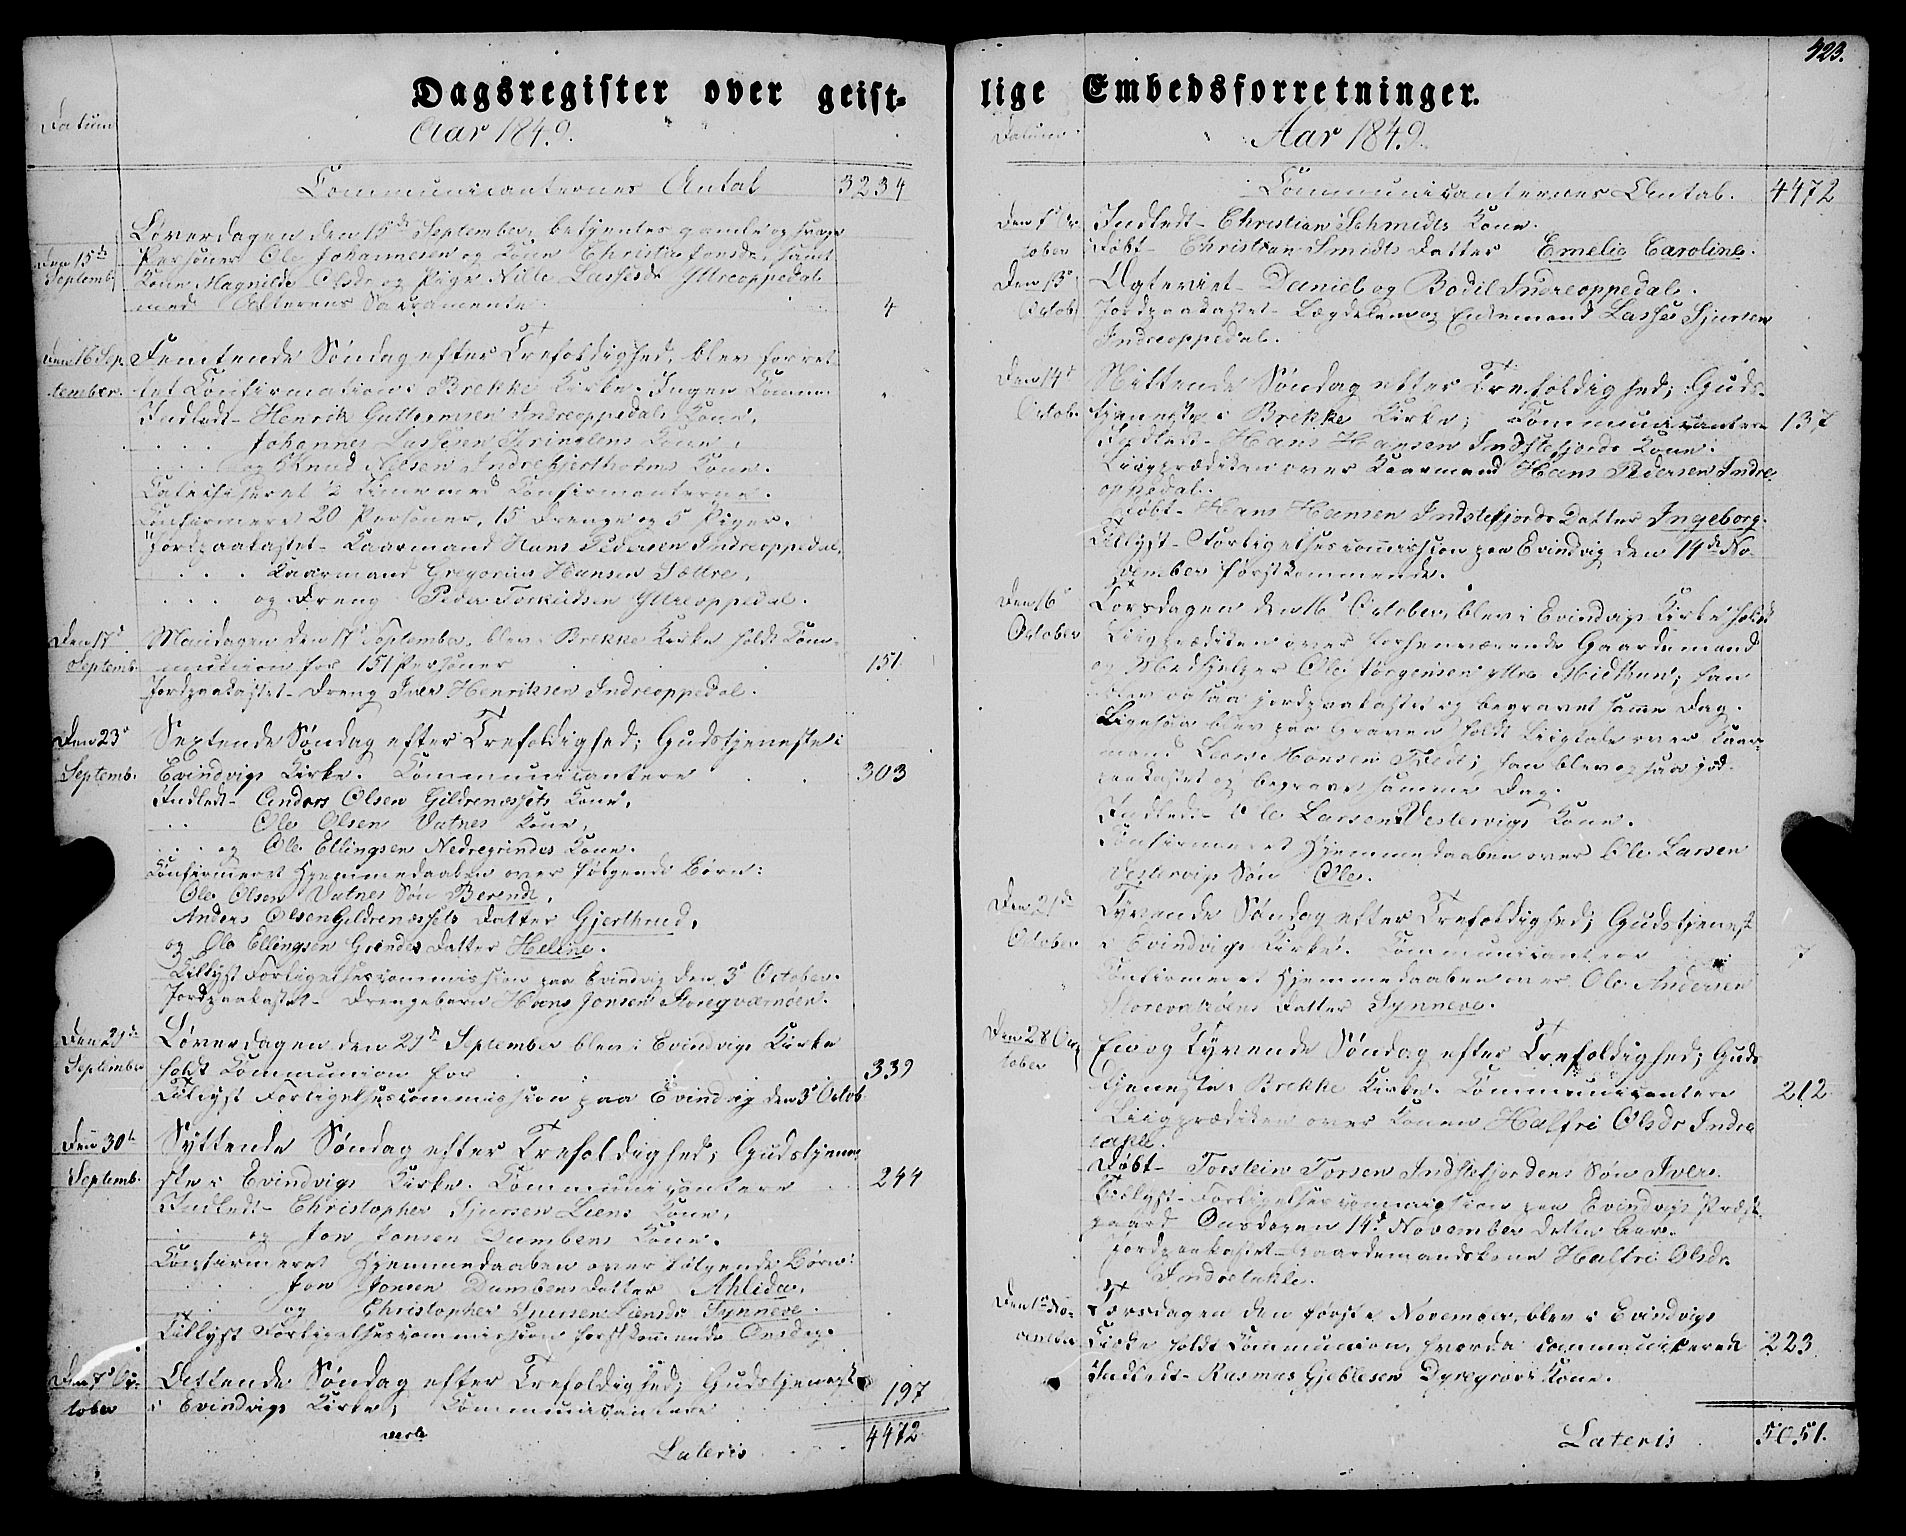 Dagsregister over geist-
Datum
Aar 1849.
Communicanternes Antal 3234
Den 15de September
Løverdagen den 15de September, betjentes gamle og svage
Personer Ole Johannesen og Kone Christie Jonsdr, samt
Kone Magnilde Olsdr og Pige Nille Lassesdr Yttreoppedal
med Alterens Sacramente 4
Den 16 September.
Femtende Søndag efter Trefoldighed, blev forret-
tet Confirmation i Brekke Kirke. Ingen Comm:
Indledt- Henrik Guttormsen Indreoppedals Kone,
Johannes Lassesen Kone,
og Knud Nilsen Indrehjertholms Kone.
Catechiseret 1/2 Time med Confirmanterne.
Confirmeret 20 Personer, 15 Drenge og 5 Piger.
Jordpaakastet- Kaarmand Hans Pedersen Indreoppedal,
Kaarmand Gregorius Hansen Sættre,
og Dreng Peder Torkildsen Yttreoppedal.
Den 17de Septemb:
Mandagen den 17de September, blev i Brekke Kirke holdt Com-
munion for 151 Personer 151
Jordpaakastet- Dreng Iver Henriksen Indreoppedal.
Den 23de Septemb.
Sextende Søndag efter Trefoldighed; Gudstjeneste i
Evindvigs Kirke. Communicantere 303
Indledt- Anders Olsen Gildrenæssets Kone,
Ole Olsen Vatnes Kone,
og Ole Ellingsen Nedregrindes Kone.
Confirmeret Hjemmedaaben over følgende Børn:
Ole Olsen Vatnes Søn Berendt,
Anders Olsen Gildrenæssets Datter Gjerthrud,
og Ole Ellingsen Grindes Datter Heline.
Tillyst Forligelsescommission paa Evindvig den 3de October.
Jordpaakastet- Drengebarn Hans Jonsen
Den 29de September
Løverdagen den 29de September blev i Evindvigs Kirke
holdt Communion for 339
Tillyst Forligelsescommission paa Evindvig den 3de Octob.
Den 30te Septemb.
Syttende Søndag efter Trefoldighed; Gudstjene-
ste i Evindvigs Kirke. Communicantere 244
Indledt- Christopher Sjursen Liens Kone,
og Jon Jonsen Dumbens Kone.
Confirmeret Hjemmedaaben over følgende Børn:
Jon Jonsen Dumbens Datter Ahlida,
og Christopher Sjursen Liens Dr Synneve.
Tillyst Forligelsescommission førstkommende Onsdag.
Den 7de October
Attende Søndag efter Trefoldighed; Gudstjeneste
i Evindvigs Kirke; Communicantere 197
verte
Lateris 4472
423.
lige Embedsforretninger.
Datum
Aar 1849.
Communicanternes Antal. 4472
Den 7de October
Indledt- Christian Schmidts Kone.
Døbt- Christian Smidts Datter Emelie Caroline.
Den 13de Octob:
Ægteviet- Daniel og Bodil Indreoppedal.
Jordpaakastet- Lægdslem og Enkemand Lasse Sjursen
Indreoppedal.
Den 14de Octob:
Nittende Søndag efter Trefoldighed; Guds-
tjeneste i Brekke Kirke; Communicantere 137
Indledt- Hans Hansen Indstefjords Kone.
Liigprædiken over Kaarmand Hans Pedersen Indre-
oppedal.
Døbt- Hans Hansen Indstefjords Datter Ingeborg.
Tillyst- Forligelsescommission paa Evindvig den 14de No-
vember førstkommende.
Den 16de October
Torsdagen den 16de October, blev i Evindvigs Kirke holdt
Liigprædiken over forhenværende Gaardemand
og Medhjelper Ole Jørgensen Ytre Midthun; han
blev ogsaa jordpaakastet og begravet samme Dag.
Ligesaa blev paa Graven holdt Liigtale over Kaar-
mand Hansen han blev ogsaa jord-
paakastet og begravet samme Dag.
Indledt- Ole Larsen Vestervigs Kone.
Confirmeret Hjemmedaaben over Ole Larsen
Vestervigs Søn Ole.
Den 21de October
Tyvende Søndag efter Trefoldighed; Gudstjeneste
i Evindvigs Kirke. Communicantere 7
Confirmeret Hjemmedaaben over Ole Andersen
Datter Synneve.
Den 28 October
Een og Tyvende Søndag efter Trefoldighed; Guds-
tjeneste i Brekke Kirke. Communicantere 212
Liigprædiken over Konen Halfri Olsdr Indre

Døbt- Torstein Torsen Indstefjordens Søn Iver.
Tillyst- Forligelsescommission paa Evindvigs Præste-
gaard Onsdagen 14de November dette Aar.
Jordpaakastet- Gaardemandskone Halfri Olsdr.
Indretakle.
Den 1ste November
Torsdagen den første November, blev i Evindvigs
Kirke holdt Communion, hvorda communicerede 223
Indledt- Rasmus Gjeblesen Dyregrovs Kone.
Lateris 5051.